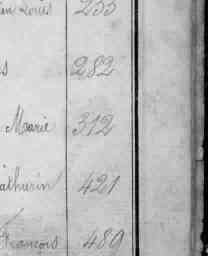 Louis 233
s 282
Marie 312
athurin 421
François 489